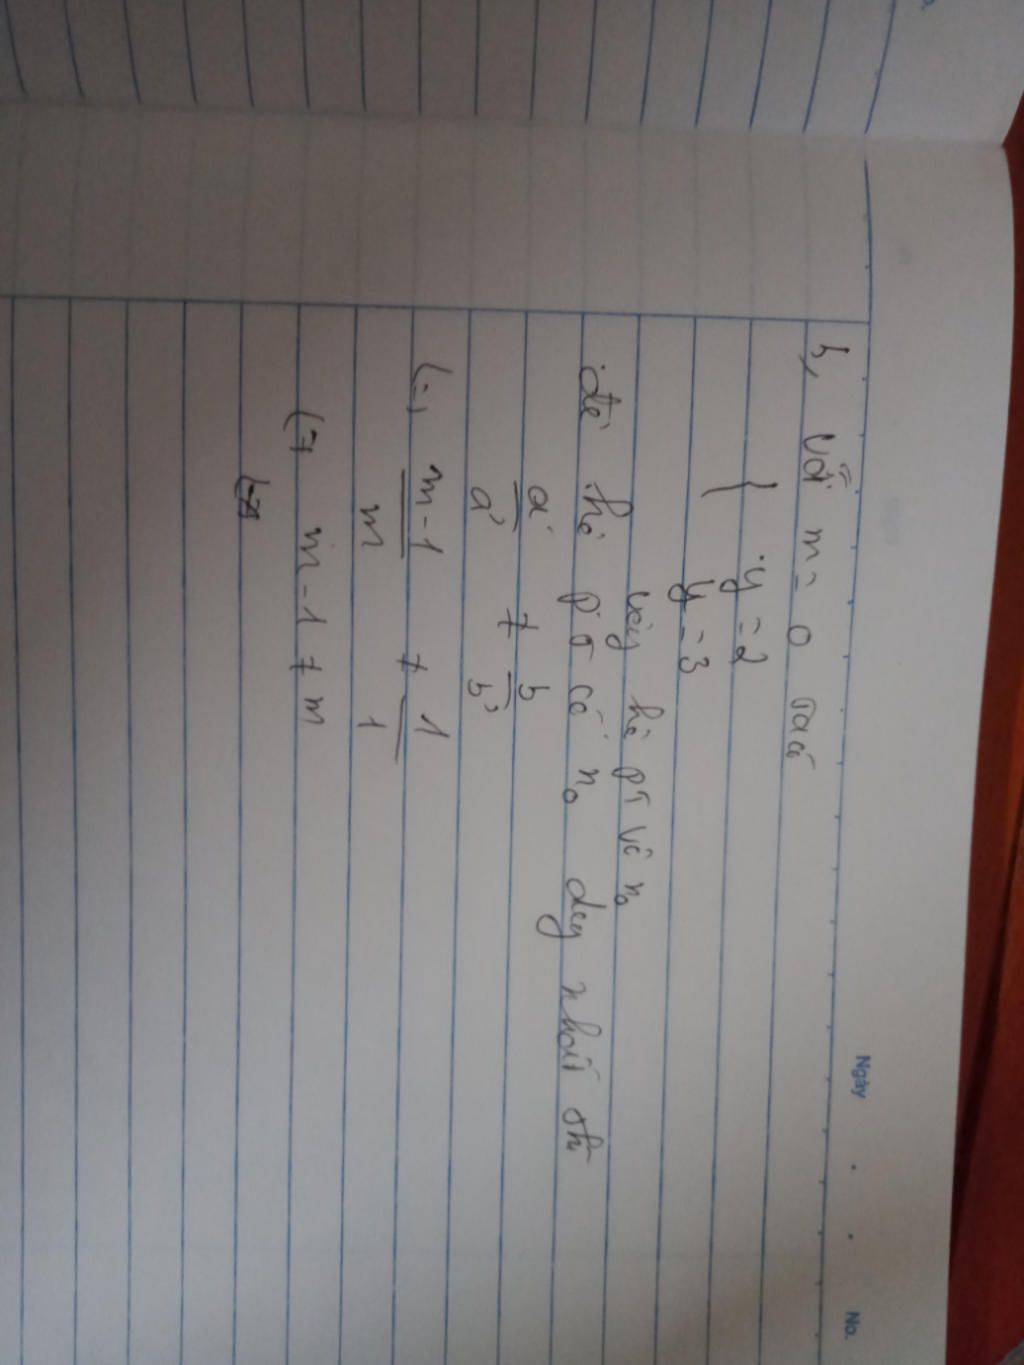 Ngày . . No.
b, với m = 0 ta có
{ y = 2
y = 3
vậy hệ pT vô no
để hệ pT có no duy nhất thì
a/a' ≠ b/b'
(=) m-1/m ≠ 1/1
(=) m-1 ≠ m
(=)